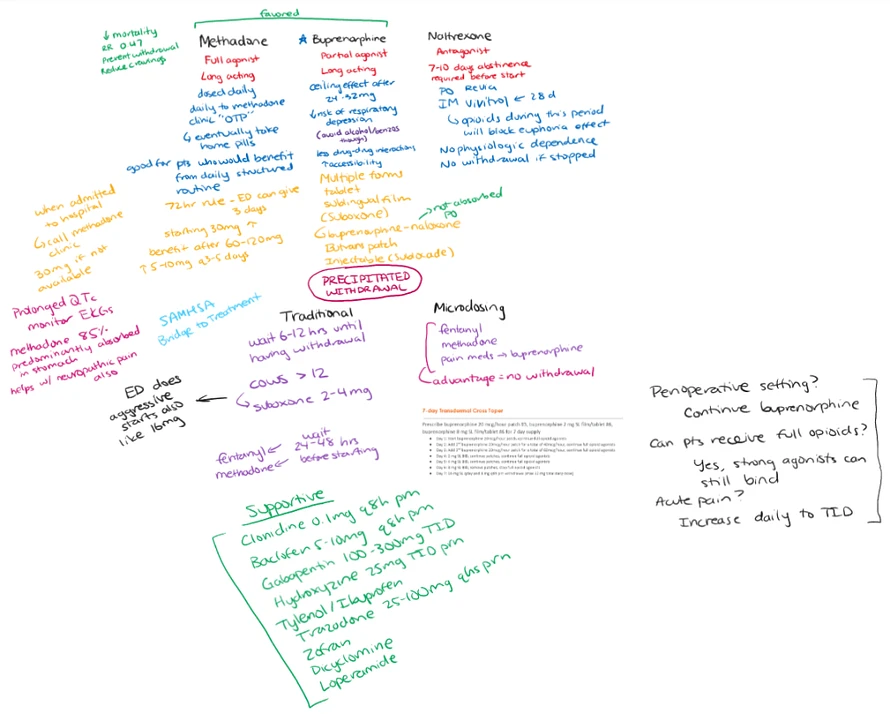 favored
↓ mortality
RR 0.47
Prevent withdrawal
Reduce cravings
Methadone
Full agonist
Long acting
dosed daily
daily to methadone
clinic "OTP"
↳ eventually take
home pills
good for pts who would benefit
from daily structured
routine
72hr rule - ED can give
3 days
starting 30mg ↑
benefit after 60-120mg
↑ 5-10mg q3-5 days
☆ Buprenorphine
Partial agonist
Long acting
ceiling effect after
24-32mg
↓ risk of respiratory
depression
(avoid alcohol/benzos
though)
less drug-drug interactions
↑ accessibility
Multiple forms
tablet
sublingual film
(Suboxone)
↳ buprenorphine-naloxone
→ not absorbed
PO
Butrans patch
Injectable (Sublocade)
Naltrexone
Antagonist
7-10 day abstinence
required before start
PO Revia
IM Vivitrol ← 28d
↳ opioids during this period
will block euphoria effect
No physiologic dependence
No withdrawal if stopped
when admitted
to hospital
↳ call methadone
clinic
30mg if not
available
Prolonged QTc
monitor EKGs
methadone 85%
predominantly absorbed
in stomach
helps w/ neuropathic pain
also
SAMHSA
Bridge to Treatment
PRECIPITATED
WITHDRAWAL
Traditional
wait 6-12 hrs until
having withdrawal
COWS > 12
↳ suboxone 2-4mg
ED does
aggressive
starts also
like 16mg
fentanyl ← wait
24-48 hrs
methadone ← before starting
Microdosing
fentanyl
methadone
pain meds → buprenorphine
advantage = no withdrawal
7-Day Transdermal Cross Taper
Perioperative setting?
Continue buprenorphine
Can pts receive full opioids?
Yes, strong agonists can
still bind
Acute pain?
Increase daily to TID
Supportive
Clonidine 0.1mg q8h prn
Baclofen 5-10mg q8h prn
Gabapentin 100-300mg TID
Hydroxyzine 25mg TID prn
Tylenol/Ibuprofen
Trazodone 25-100mg qhs prn
Zofran
Dicyclomine
Loperamide